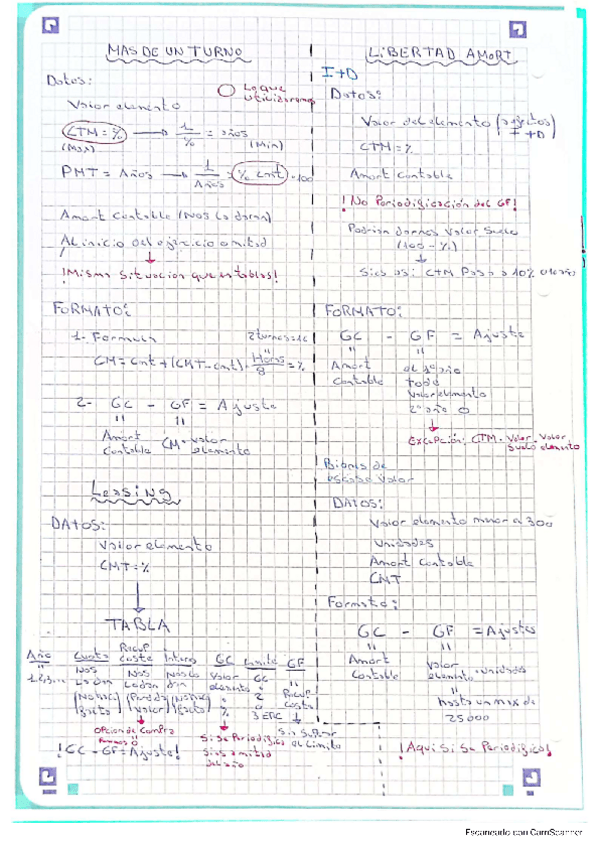 MAS DE UN TURNO
Datos:
Lo que utilizaremos
Valor elemento
CTM = % → 1/% = años
(Max) (Min)
PMT = Años → 1/Años = % Cmt · 100
Amort Contable (Nos la daran)
Al inicio del ejercicio o mitad
↓
¡Misma situación que en tablas!
FORMATO:
1- Formula
2 turnos = 16
CM = Cmt + (CMT - Cmt) · Horas/8 = %
2- GC - GF = Ajuste
Amort Contable
CM · valor elemento
Leasing
DATOS:
Valor elemento
CMT = %
↓
TABLA
Año Cuota Recup coste Interes GC Limite GF
1,2,3...
Nos la dan
Nos la dan
Nos la dan
Valor elemento · %
GC · 2 o 3 ERD
Recup coste
Sin superar el limite
opcion de compra
Si se Periodifica
Si es a mitad del año
¡GC - GF = Ajuste!
LIBERTAD AMORT
I+D
Datos:
Valor del elemento (sujetos I+D)
CTM = %
Amort Contable
¡No Periodificación del GF!
Podrian darnos Valor Suelo
(100 - %)
↓
Si es asi: CTM Pasa a 10%
FORMATO:
GC - GF = Ajuste
Amort Contable
el 1º año todo valor elemento
2º año 0
↓
Excepción: CTM · Valor suelo · Valor elemento
Bienes de escaso valor
DATOS:
Valor elemento menor a 300
Unidades
Amort Contable
CMT
Formato:
GC - GF = Ajustes
Amort Contable
Valor elemento · unidades
hasta un max de 25000
¡Aqui Si Se Periodifica!
Escaneado con CamScanner